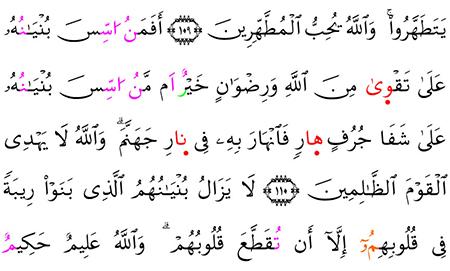 يَتَطَهَّرُواْۚ وَٱللَّهُ يُحِبُّ ٱلْمُطَّهِّرِينَ ١٠٩ أَفَمَنُ اسِّسَ بُنْيَٰنُهُۥ
عَلَىٰ تَقْوِىٰ مِنَ ٱللَّهِ وَرِضْوَٰنٍ خَيْرٌ اَم مَّنُ اسِّسَ بُنْيَٰنُهُۥ
عَلَىٰ شَفَا جُرُفٍ هارٖ فَٱنْهَارَ بِهِۦ فِى نارِ جَهَنَّمَۗ وَٱللَّهُ لَا يَهْدِى
ٱلْقَوْمَ ٱلظَّٰلِمِينَ ١١٠ لَا يَزَالُ بُنْيَٰنُهُمُ ٱلَّذِى بَنَوْاْ رِيبَةً
فِى قُلُوبِهِمُۥٓ إِلَّآ أَن تُقَطَّعَ قُلُوبُهُمْۗ وَٱللَّهُ عَلِيمٌ حَكِيمٌ